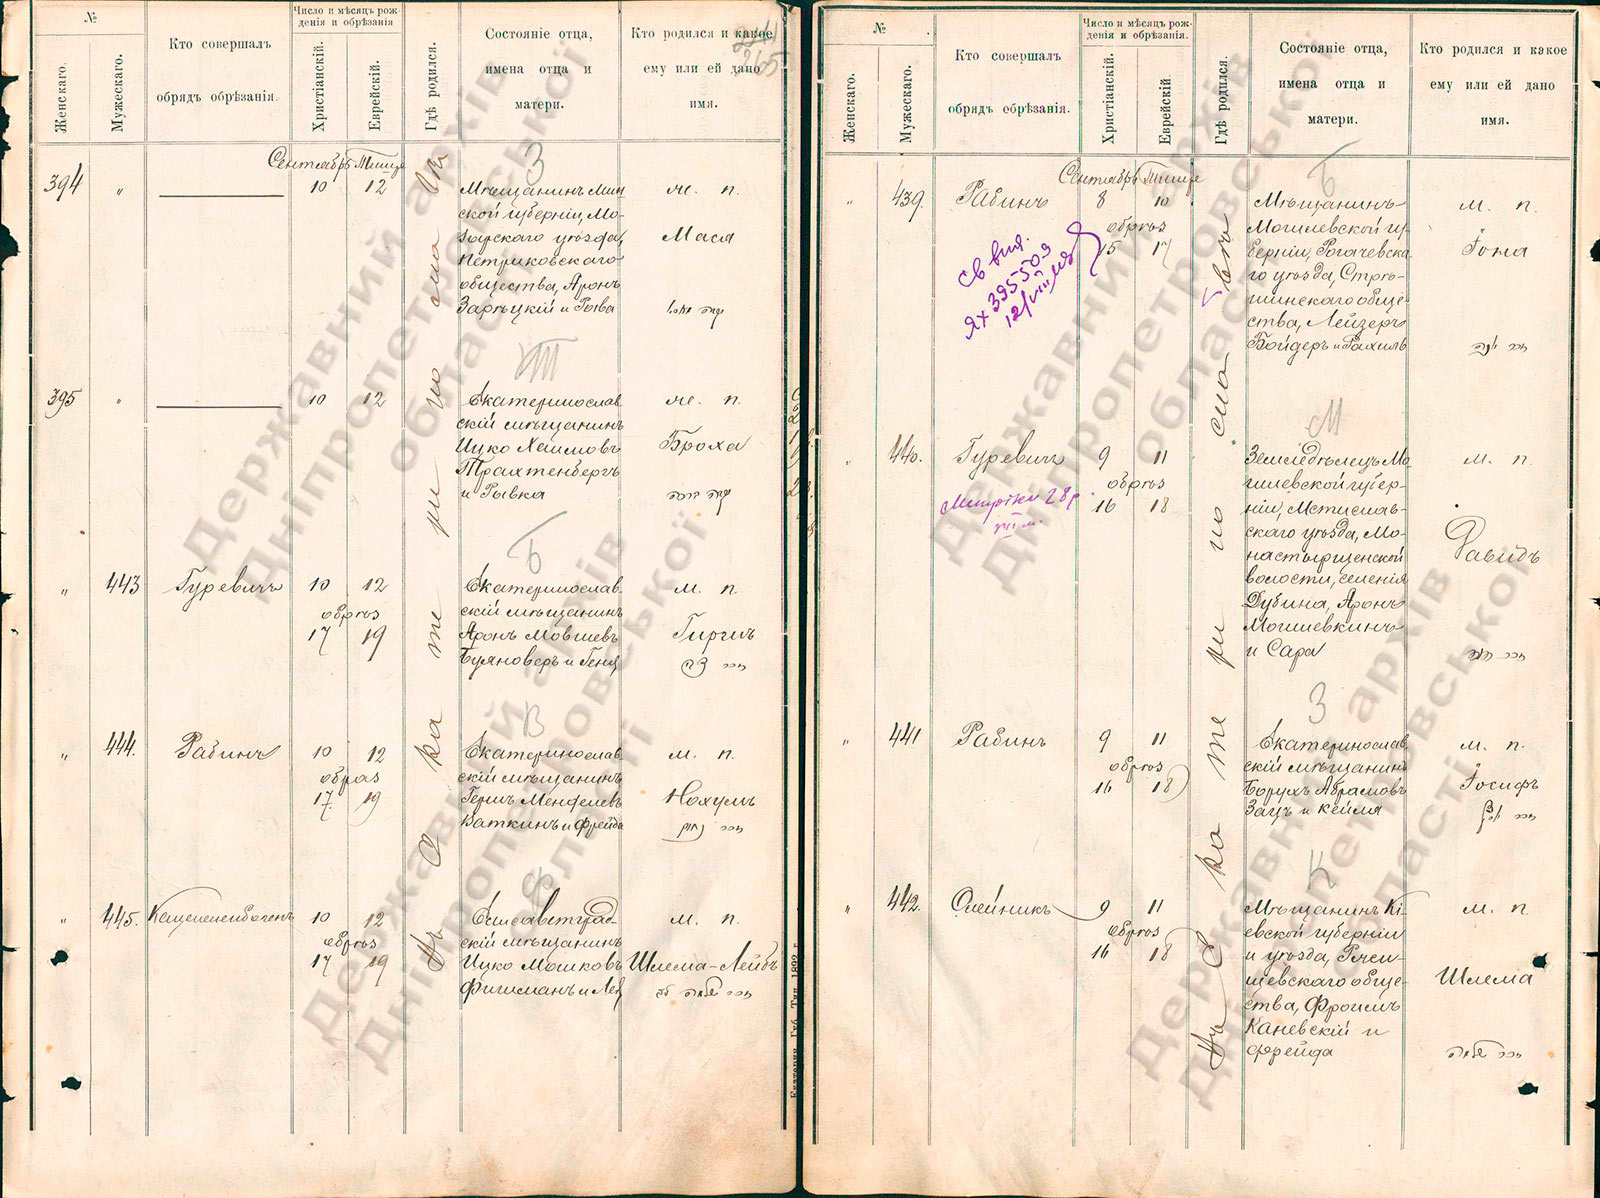 №
Женскаго.
Мужескаго.
Кто совершалъ
обрядъ обрѣзанія.
Число и мѣсяцъ рож-
денія и обрѣзанія
Христіанскій.
Еврейскій.
Гдѣ родился.
Состояніе отца,
имена отца и
матери.
Кто родился и какое
ему или ей дано
имя.
265
Сентябрь Тишре
въ Екатеринославѣ
З
394 „ 10 12
Мѣщанинъ Мин
ской губерніи, Мо-
зырскаго уѣзда,
Петриковскаго
общества, Аронъ
Зарѣцкій и Рыва
ж. п.
Мася
Т
395 „ 10 12
Екатеринослав
скій мѣщанинъ
Ицко Хаимовъ
Трахтенбергъ
и Рывка
ж. п.
Броха
Б
„ 443 Гуревичъ 10 12
обрѣз
17 19
Екатеринослав
скій мѣщанинъ
Аронъ Мовшевъ
Буяноверъ и Геня
м. п.
Гиршъ
В
„ 444. Рабинъ 10 12
обрѣз
17 19
Екатеринослав
скій мѣщанинъ
Гершъ Менделевъ
Ваткинъ и Фрейда
м. п.
Нохумъ
זכר נחום
Ф
„ 445. 10 12
обрѣз
17 19
Елисаветград-
скій мѣщанинъ
Ицко Мошковъ
Фишманъ и Лея
м. п.
Шлема-Лейбъ
זכר שלמה לב
Екатерин. Губ. Тип. 1892 г.
№
Женскаго.
Мужескаго.
Кто совершалъ
обрядъ обрѣзанія.
Число и мѣсяцъ рож-
денія и обрѣзанія.
Христіанскій.
Еврейскій
Гдѣ родился.
Состояніе отца,
имена отца и
матери.
Кто родился и какое
ему или ей дано
имя.
Сентябрь Тишре
въ Екатеринославѣ
Б
„ 439. Рабинъ 8 10
обрѣз
15 17
св выд.
ЯХ 395503
Мѣщанинъ
Могилевской гу-
берніи, Рогачевска
го уѣзда, Стрѣ-
шинскаго обще-
ства, Лейзеръ
Бойдеръ и Рахиль
м. п.
Іона
זכר יונה
М
„ 440. Гуревичъ 9 11
обрѣз
16 18
Метрики 28 г.
Земледѣлецъ Мо
гилевской губер-
ніи, Мстислав-
скаго уѣзда, Мо-
настырщенской
волости, селенія
Дубина, Аронъ
Могилевкинъ
и Сара
м. п.
Давидъ
זכר דוד
З
„ 441 Рабинъ 9 11
обрѣз
16 18
Екатеринослав
скій мѣщанинъ
Борухъ Абрамовъ
Зацъ и Кейля
м. п.
Іосифъ
К
„ 442. Олейникъ 9 11
обрѣз
16 18
Мѣщанинъ Кі-
евской губерніи
и уѣзда, Ржи-
щевскаго обще-
ства, Фроимъ
Каневскій и
Фрейда
м. п.
Шлема
זכר שלמה
Державний архів
Дніпропетровської
області
Державний архів
Дніпропетровської
області
Державний архів
Дніпропетровської
області
Державний архів
Дніпропетровської
області